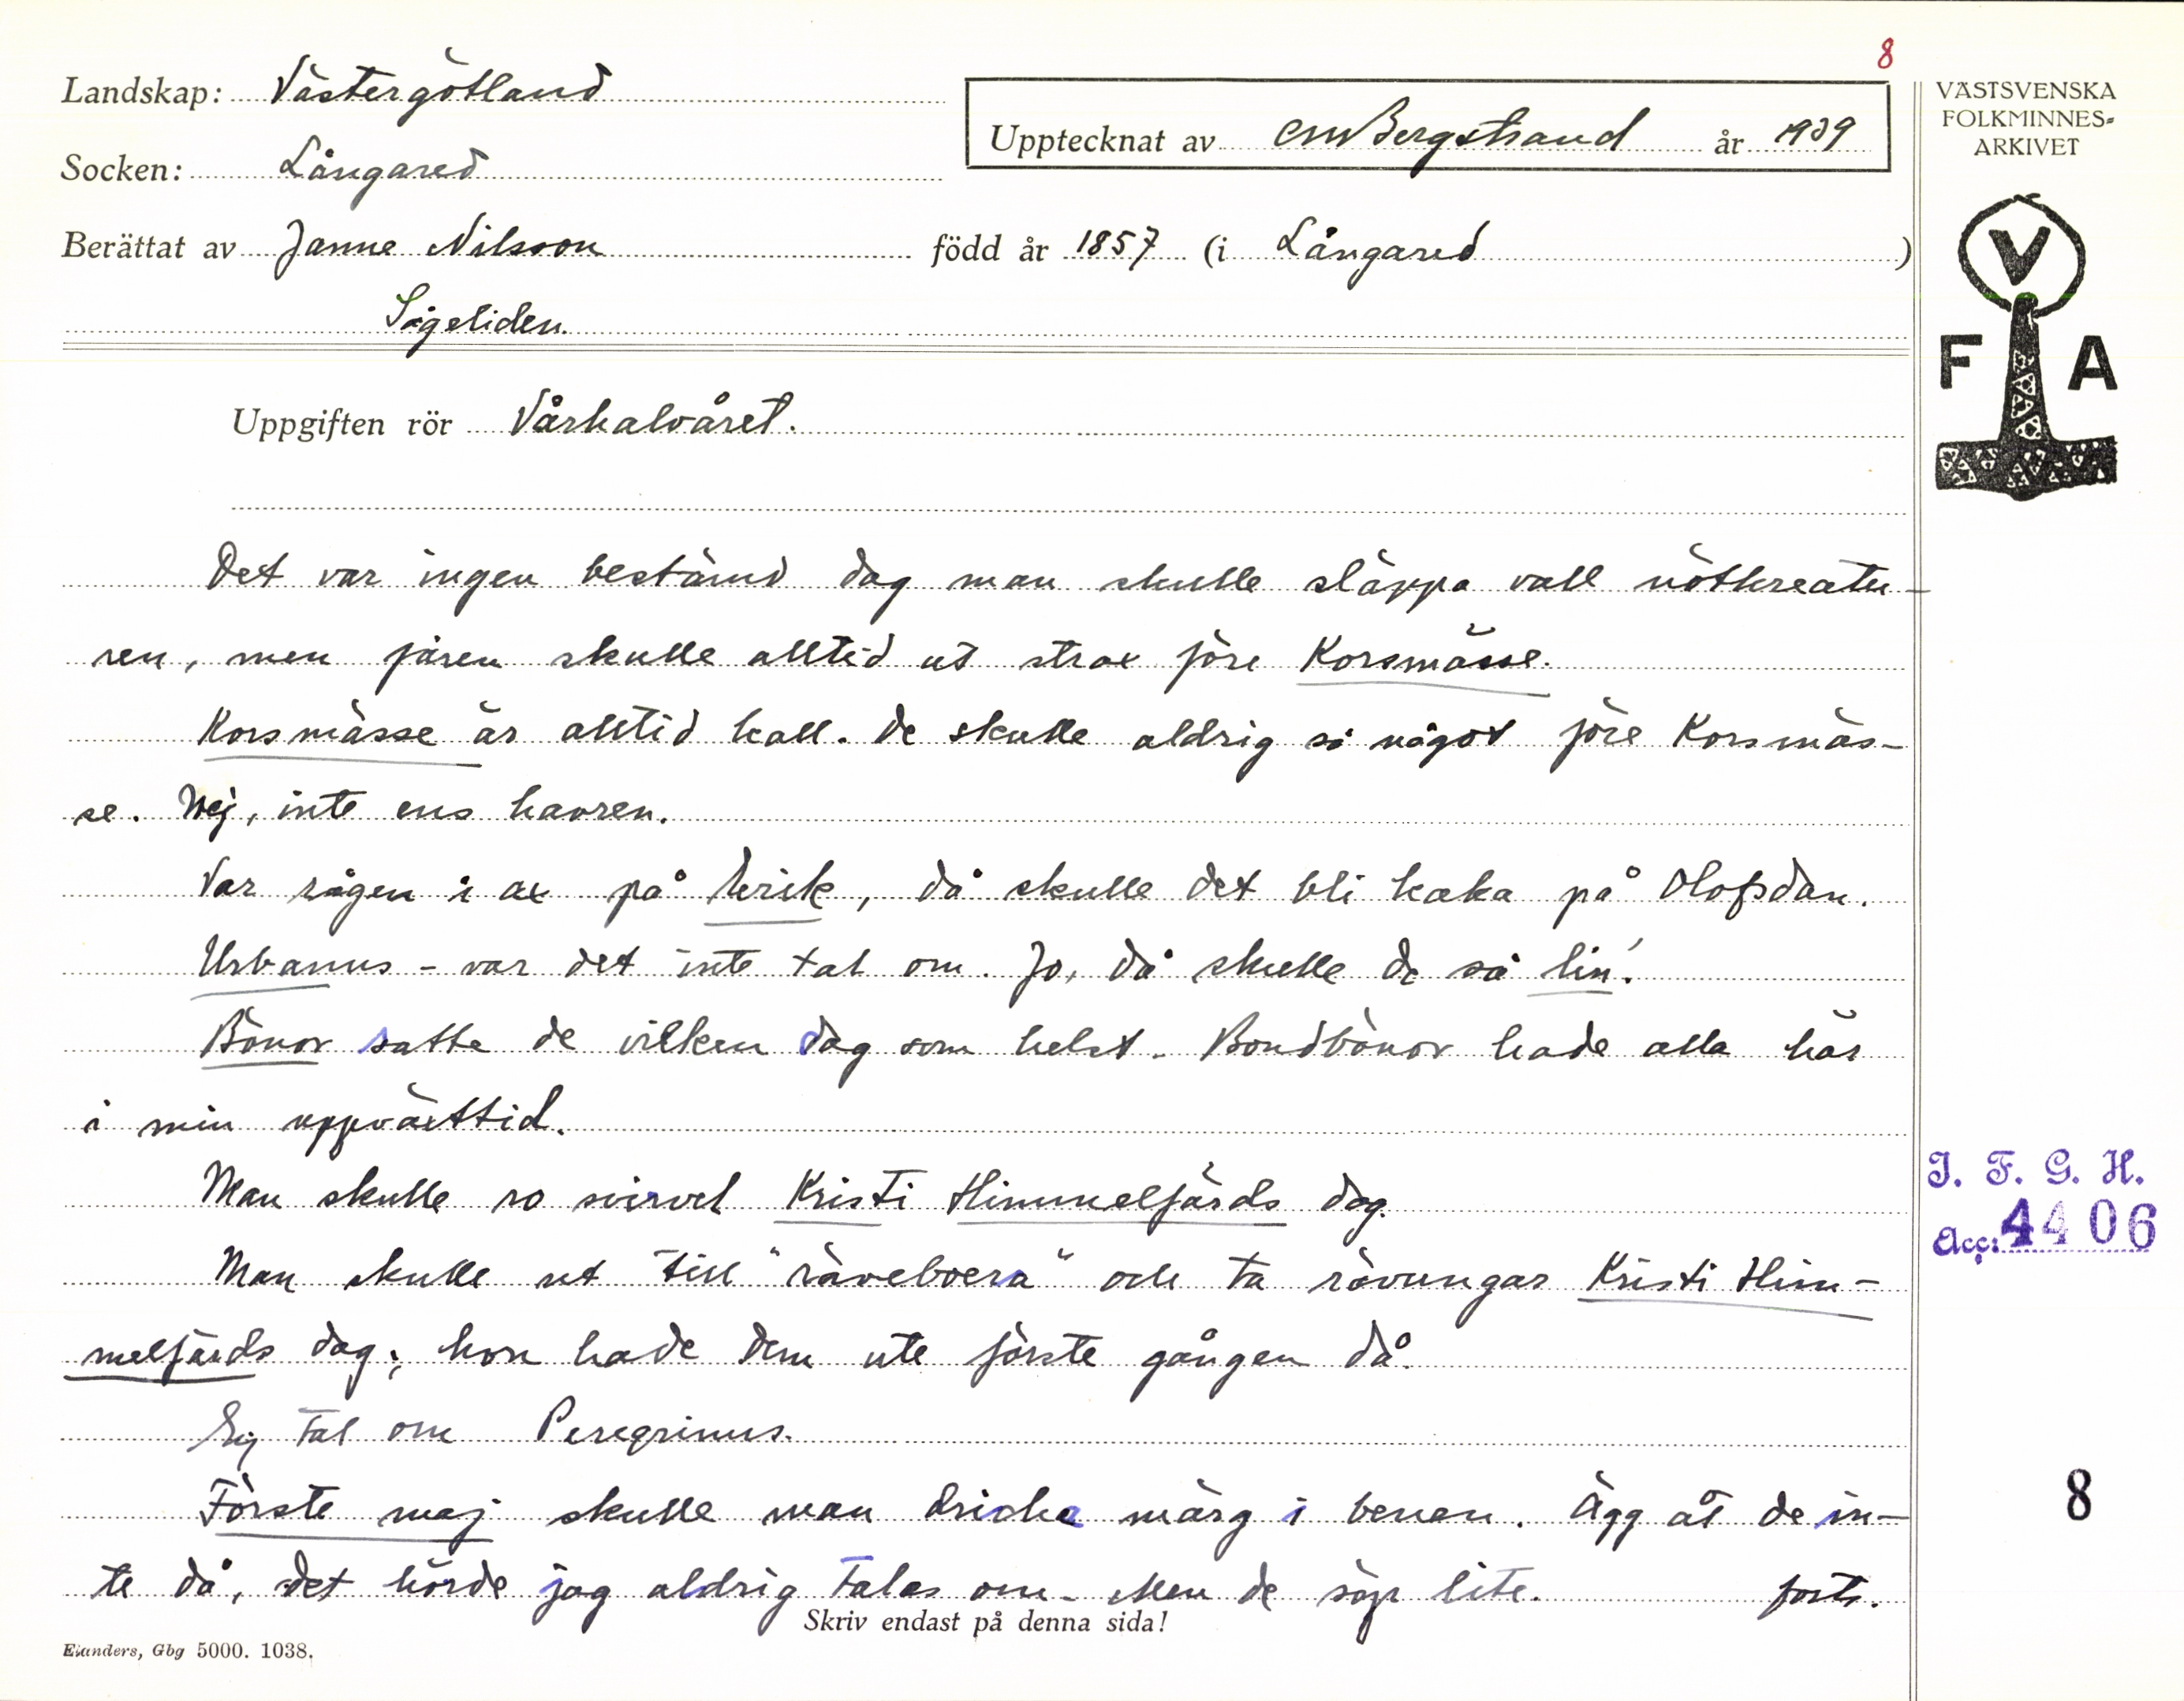 8
Landskap: Västergötland
Upptecknat av CM Bergstrand år 1939
VÄSTSVENSKA
FOLKMINNES-
ARKIVET
Socken: Långared
Berättat av Janne Nilsson född år 1857 (i Långared)
Sågeliden.
V
F A
Uppgiften rör Vårhalvåret.
Det var ingen bestämd dag man skulle släppa vall nötkreatu-
ren, men fåren skulle alltid ut strax före Korsmässe.
Korsmässe är alltid kall. De skulle aldrig så något före Korsmäs-
se. Nej, inte ens havren.
Var rågen i ax på Erik, då skulle det bli kaka på Olofsdan.
Urbanus - var det inte tal om. Jo, då skulle de så lin!
Bönor satte de vilken dag som helst. Bondbönor hade alla här
i min uppväxttid.
Man skulle ro Kristi Himmelfärds dag.
Man skulle ut till "räveboera" och ta rävungar Kristi Him-
melfärds dag; hon hade dem ute förste gången då.
Ej tal om Peregrinus.
Förste maj skulle man dricka märg i benen. Ägg åt de in-
te då, det hörde jag aldrig talas om. Men de söp lite. forts.
I. F. G. H.
Acc: 4406
8
Skriv endast på denna sida!
Elanders, Gbg 5000. 1038.